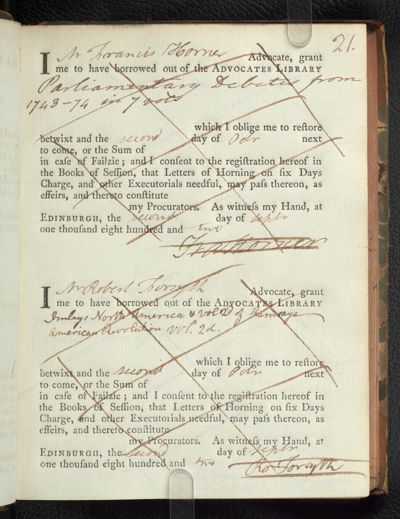 21.
I Mr Francis Horner Advocate, grant
me to have borrowed out of the ADVOCATES LIBRARY
Parliamentary Debates from
1743-74 in 7 vols
which I oblige me to reſtore
betwixt and the second day of Octr next
to come, or the Sum of
in caſe of Failzie; and I conſent to the regiſtration hereof in
the Books of Seſſion, that Letters of Horning on ſix Days
Charge, and other Executorials needful, may paſs thereon, as
effeirs, and thereto conſtitute
my Procurators. As witneſs my Hand, at
EDINBURGH, the second day of Septr
one thouſand eight hundred and two
Fra Horner
I Mr Robert Forsyth Advocate, grant
me to have borrowed out of the ADVOCATES LIBRARY
Imlays North America & vol 2d of Ramsays
American Revolution vol. 2d.
which I oblige me to reſtore
betwixt and the second day of Octr next
to come, or the Sum of
in caſe of Failzie; and I conſent to the regiſtration hereof in
the Books of Seſſion, that Letters of Horning on ſix Days
Charge, and other Executorials needful, may paſs thereon, as
effeirs, and thereto conſtitute
my Procurators. As witneſs my Hand, at
EDINBURGH, the second day of Septr
one thouſand eight hundred and two
Ro Forsyth